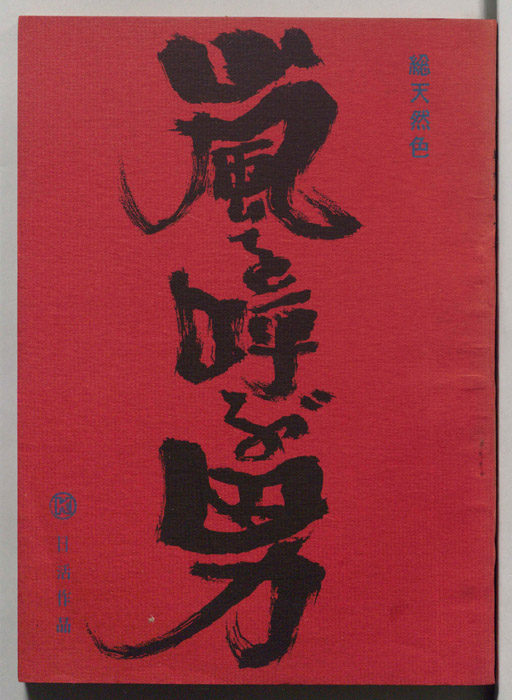 総天然色
嵐を呼ぶ男
日活作品